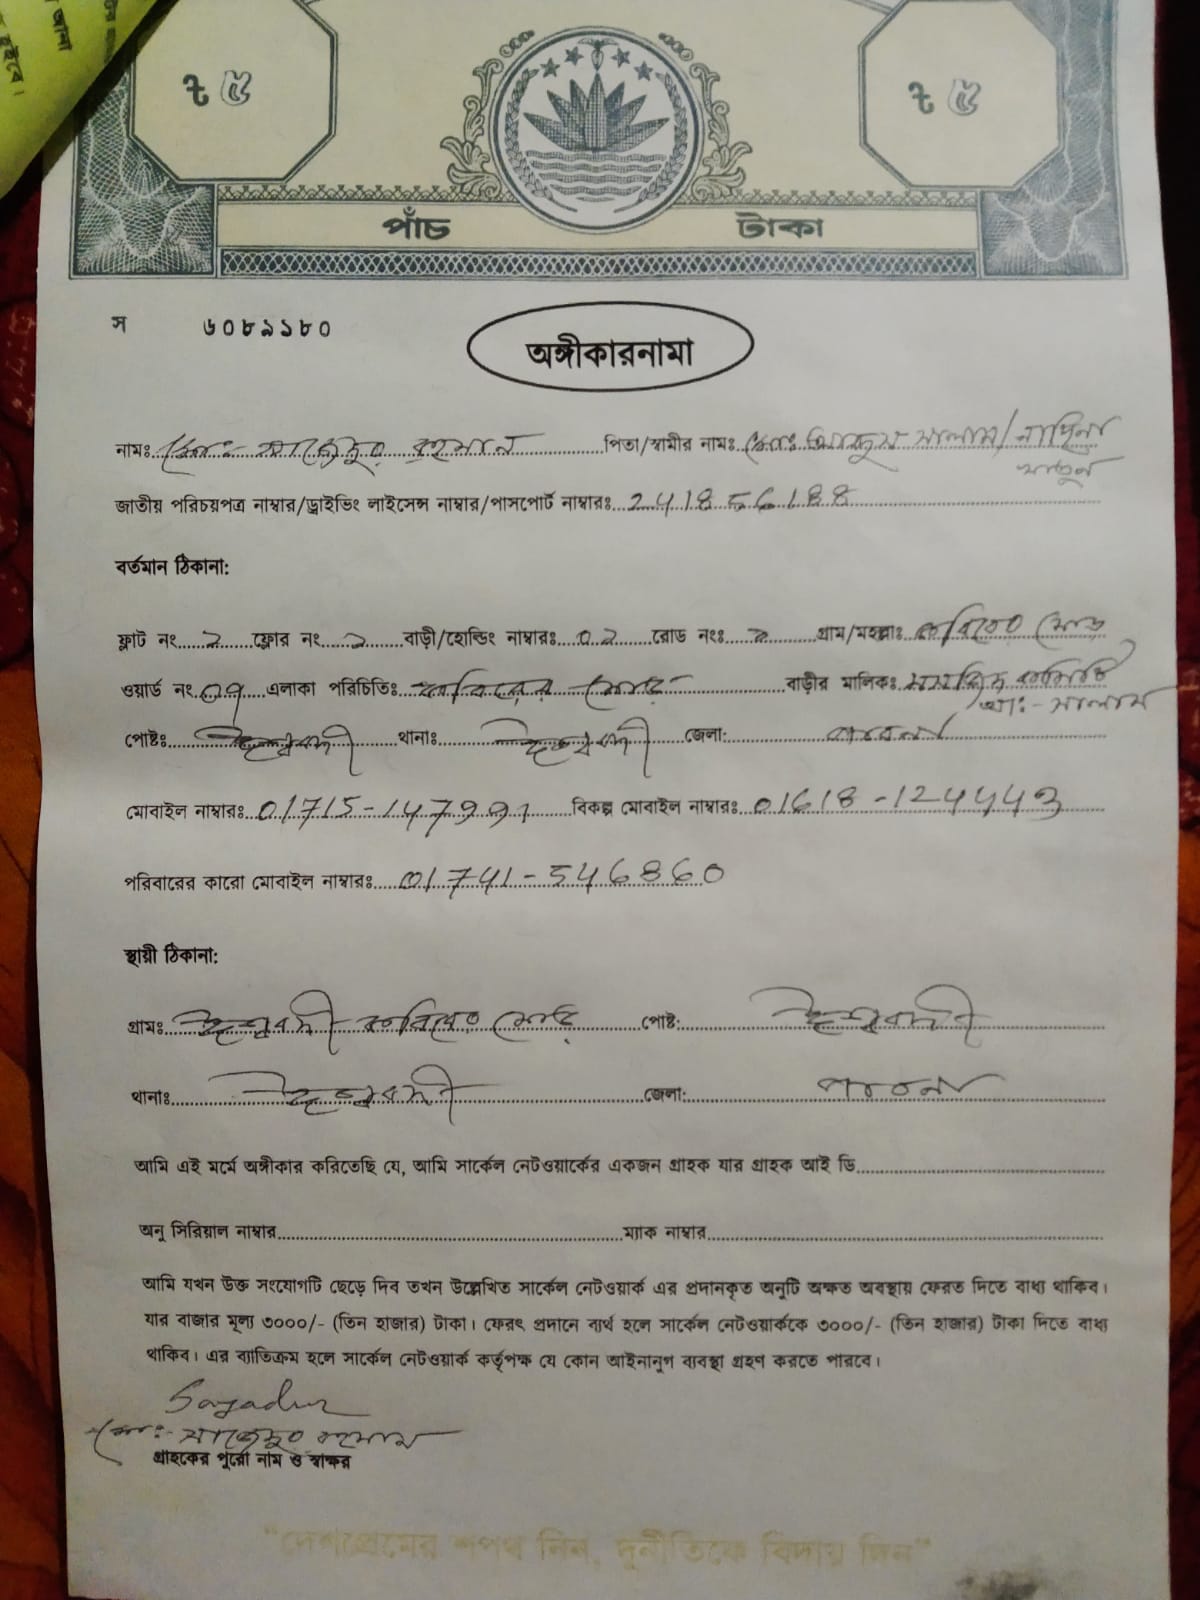 ৳ ৫
৳ ৫
পাঁচ টাকা
স ৬০৮৯১৮০
অঙ্গীকারনামা
নামঃ মোঃ- সাজেদুর রহমান পিতা/স্বামীর নামঃ মোঃ সালাম/
খাতুন
জাতীয় পরিচয়পত্র নাম্বার/ড্রাইভিং লাইসেন্স নাম্বার/পাসপোর্ট নাম্বারঃ 2418556188
বর্তমান ঠিকানা:
ফ্লাট নং ২ ফ্লোর নং ২ বাড়ী/হোল্ডিং নাম্বারঃ ০২ রোড নংঃ ২ গ্রাম/মহল্লাঃ মোড়
ওয়ার্ড নং ০৭ এলাকা পরিচিতিঃ মোড় বাড়ীর মালিকঃ
আঃ- সালাম
পোষ্টঃ ঈশ্বরদী থানাঃ ঈশ্বরদী জেলা: পাবনা
মোবাইল নাম্বারঃ 01715-147991 বিকল্প মোবাইল নাম্বারঃ
পরিবারের কারো মোবাইল নাম্বারঃ 01741-546860
স্থায়ী ঠিকানা:
গ্রামঃ ঈশ্বরদী মোড় পোষ্ট: ঈশ্বরদী
থানাঃ ঈশ্বরদী জেলা: পাবনা
আমি এই মর্মে অঙ্গীকার করিতেছি যে, আমি সার্কেল নেটওয়ার্কের একজন গ্রাহক যার গ্রাহক আই ডি
অনু সিরিয়াল নাম্বার ম্যাক নাম্বার
আমি যখন উক্ত সংযোগটি ছেড়ে দিব তখন উল্লেখিত সার্কেল নেটওয়ার্ক এর প্রদানকৃত অনুটি অক্ষত অবস্থায় ফেরত দিতে বাধ্য থাকিব।
যার বাজার মূল্য ৩০০০/- (তিন হাজার) টাকা। ফেরৎ প্রদানে ব্যর্থ হলে সার্কেল নেটওয়ার্ককে ৩০০০/- (তিন হাজার) টাকা দিতে বাধ্য
থাকিব। এর ব্যতিক্রম হলে সার্কেল নেটওয়ার্ক কর্তৃপক্ষ যে কোন আইনানুগ ব্যবস্থা গ্রহণ করতে পারবে।
মোঃ- সাজেদুর রহমান
গ্রাহকের পুরো নাম ও স্বাক্ষর
"দেশপ্রেমের শপথ নিন, দুর্নীতিকে বিদায় দিন"